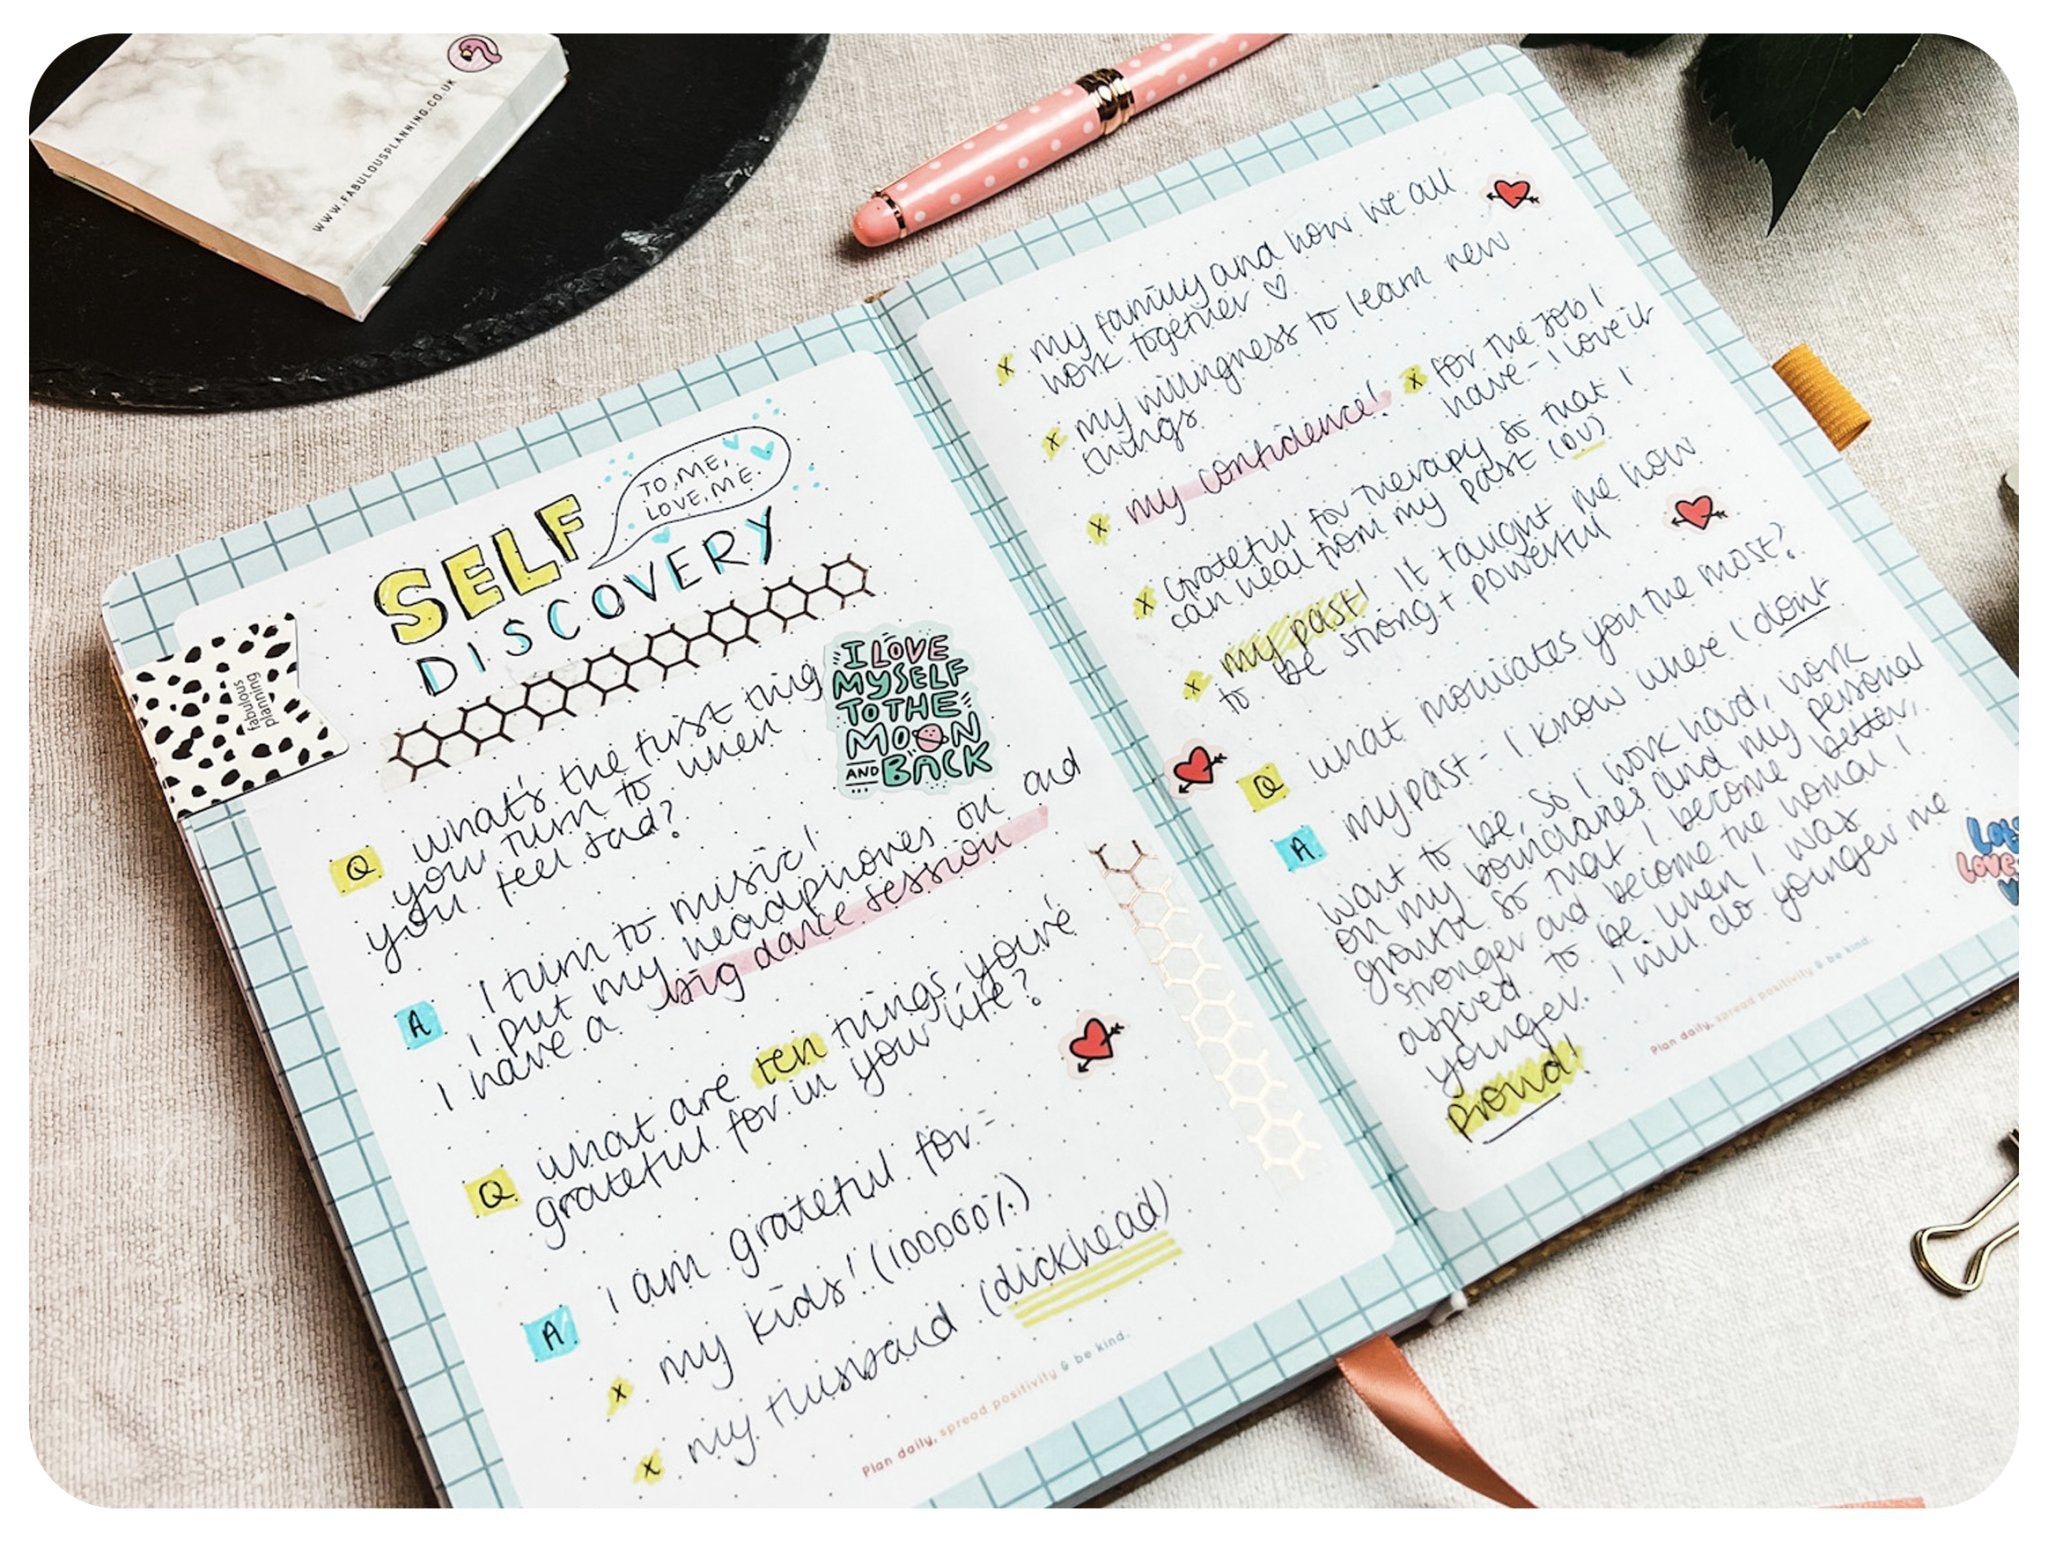 WWW.FABULOUSPLANNING.CO.UK
fabulous
planning
SELF
DISCOVERY
TO ME,
LOVE, ME.
I LOVE
MYSELF
TO THE
MOON
AND BACK
Q What's the first thig
you turn to when
you feel sad?
A I turn to music!
I put my headphones on and
I have a big dance session
Q What are ten things you're
grateful for in your life?
A I am grateful for-
x my kids! (100000%)
x my husband (dickhead)
Plan daily, spread positivity & be kind.
x my family and how we all
work together ♡
x my willingness to learn new
things
x my confidence!
x for the job I
have - I love it
x Grateful for therapy so that I
can heal from my past (DV)
x my past! It taught me how
to be strong + powerful
Q What motivates you the most?
A My past - I know where I dont
want to be, so I work hard, work
on my boundaries and my personal
growth so that I become better,
stronger and become the woman I
aspired to be when I was
younger. I will do younger me
Proud!
Plan daily, spread positivity & be kind.